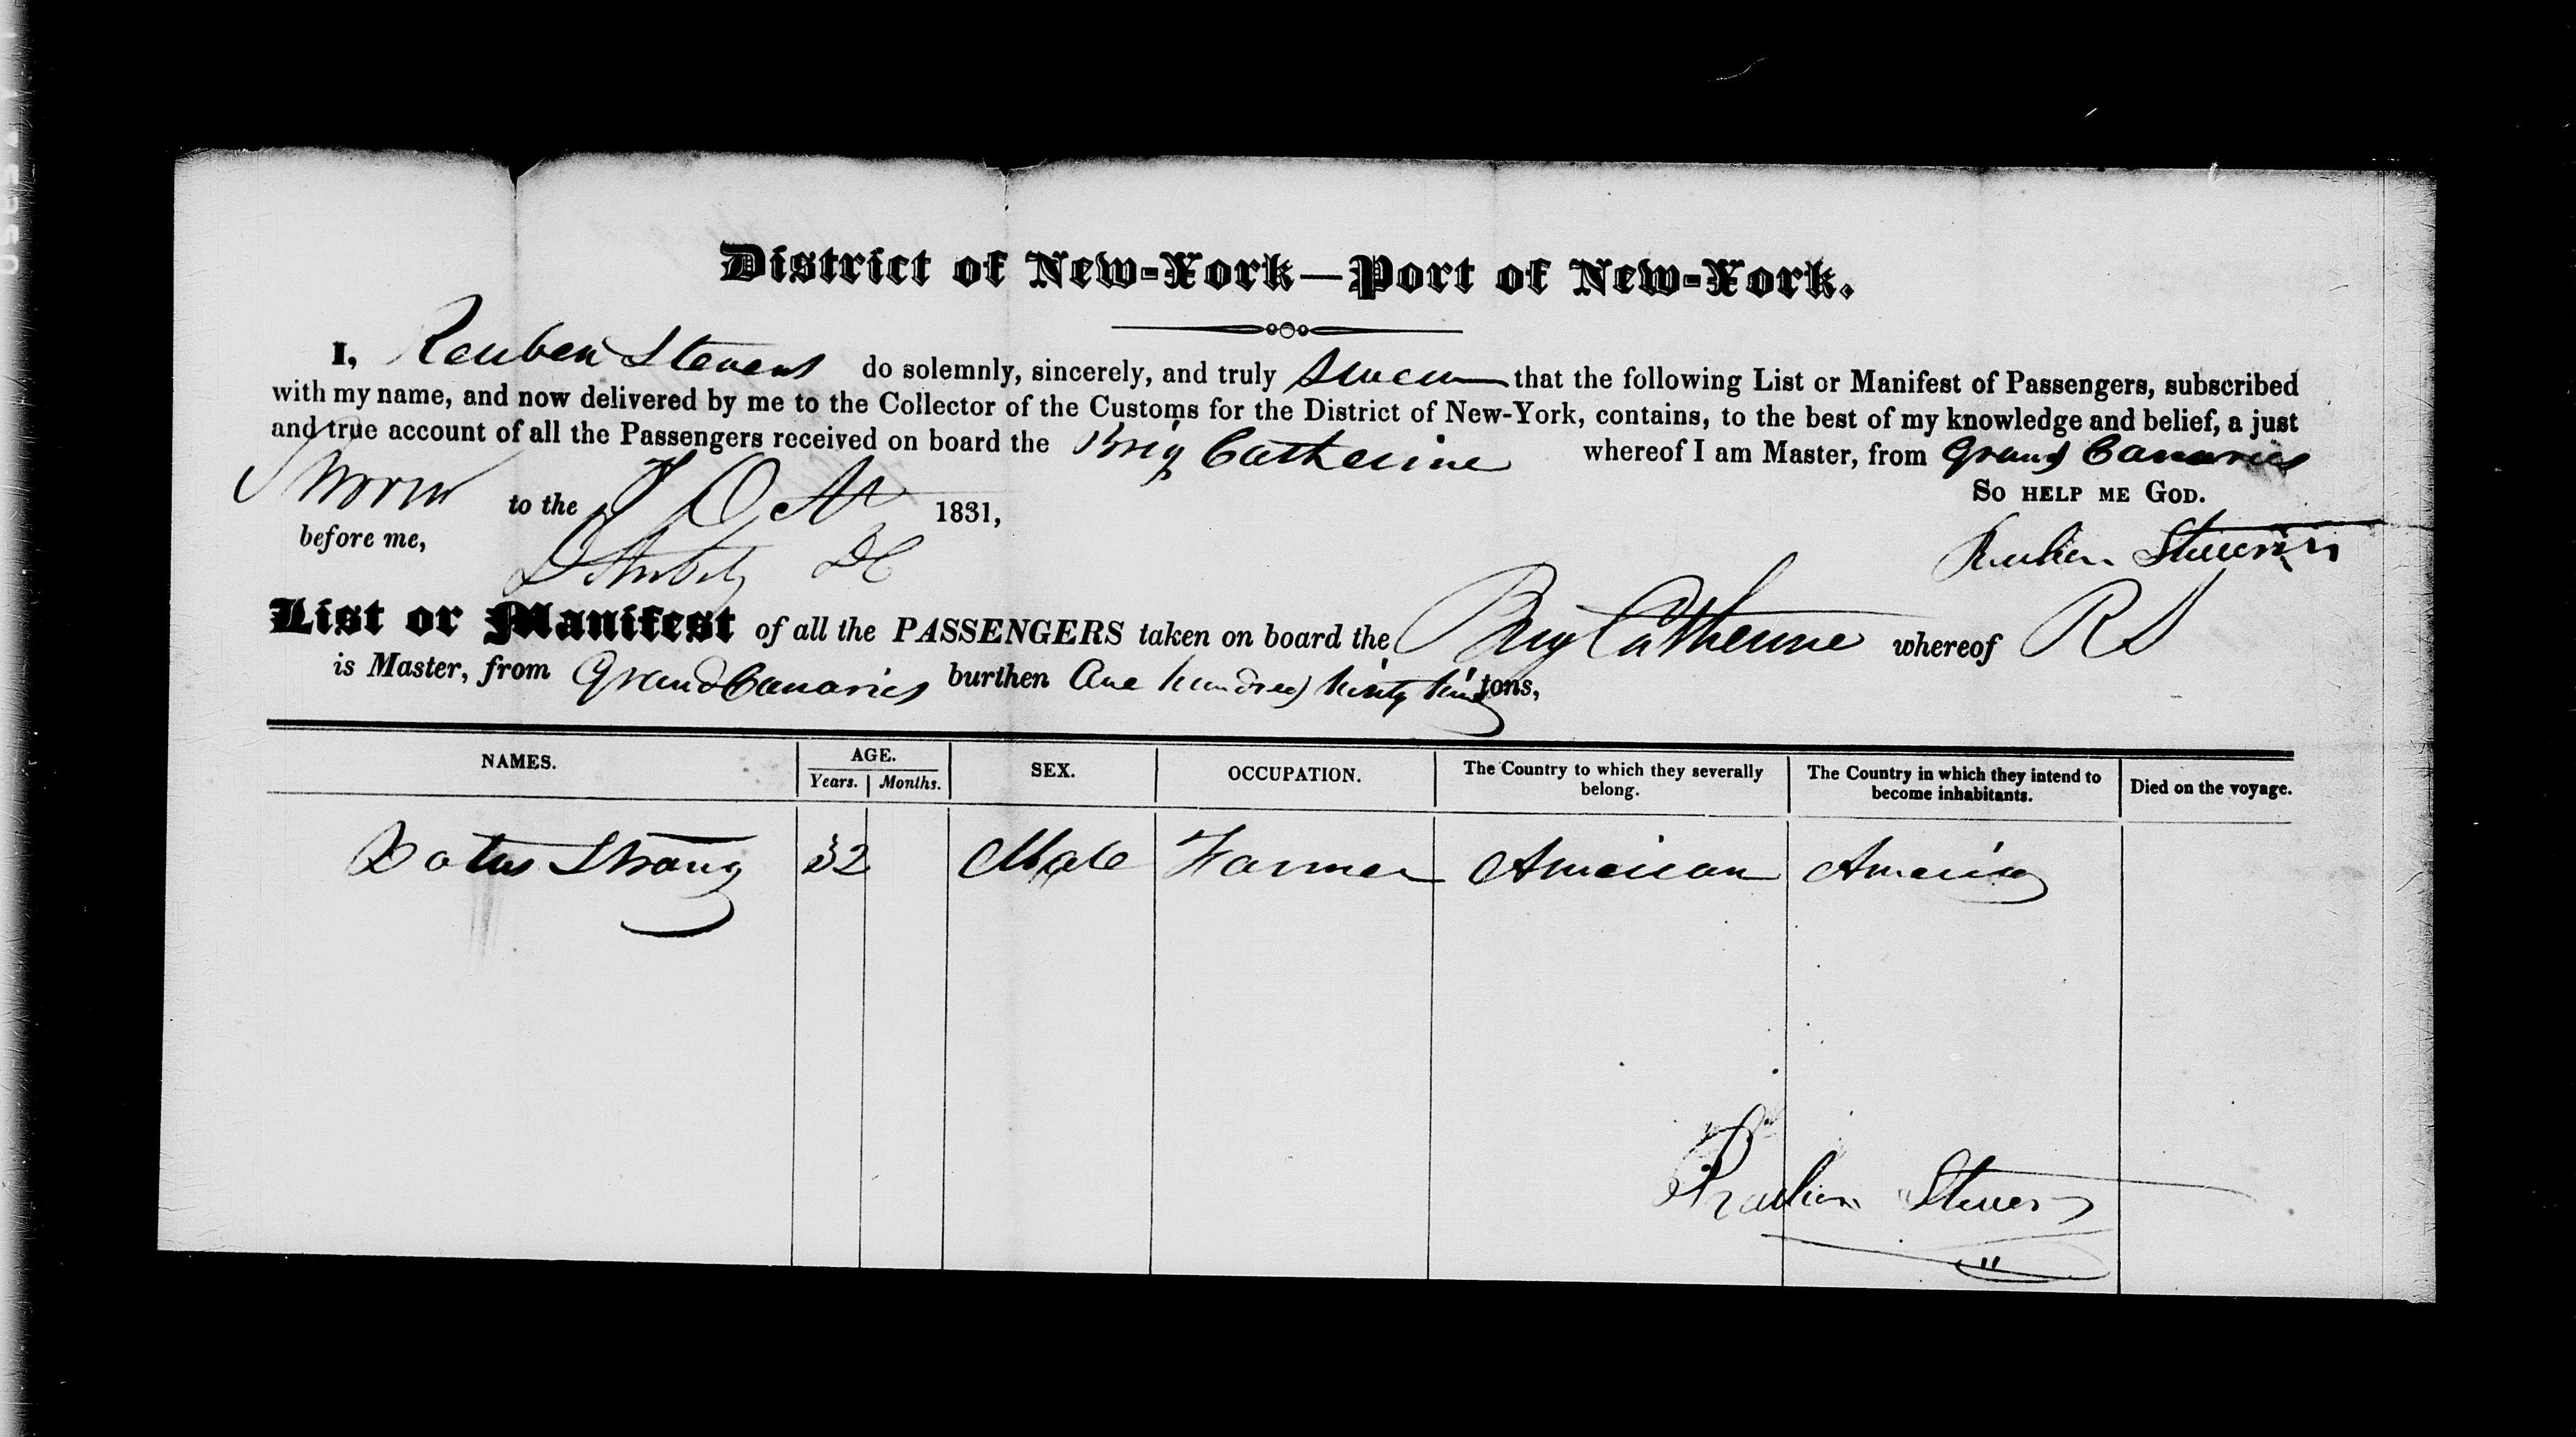 District of New-York—Port of New-York.
I, Reuben Stevens do solemnly, sincerely, and truly swear that the following List or Manifest of Passengers, subscribed
with my name, and now delivered by me to the Collector of the Customs for the District of New-York, contains, to the best of my knowledge and belief, a just
and true account of all the Passengers received on board the Brig Catherine whereof I am Master, from Grand Canaries
So help me God.
Sworn to the Oct 1831,
before me, DC
Reuben Stevens
List or Manifest of all the PASSENGERS taken on board the Brig Catherine whereof RS
is Master, from Grand Canaries burthen One hundred ninety nine tons,
NAMES. AGE. SEX. OCCUPATION. The Country to which they severally belong. The Country in which they intend to become inhabitants. Died on the voyage.
Years. Months.
Strang 32 Male Farmer American America
Reuben Stevens